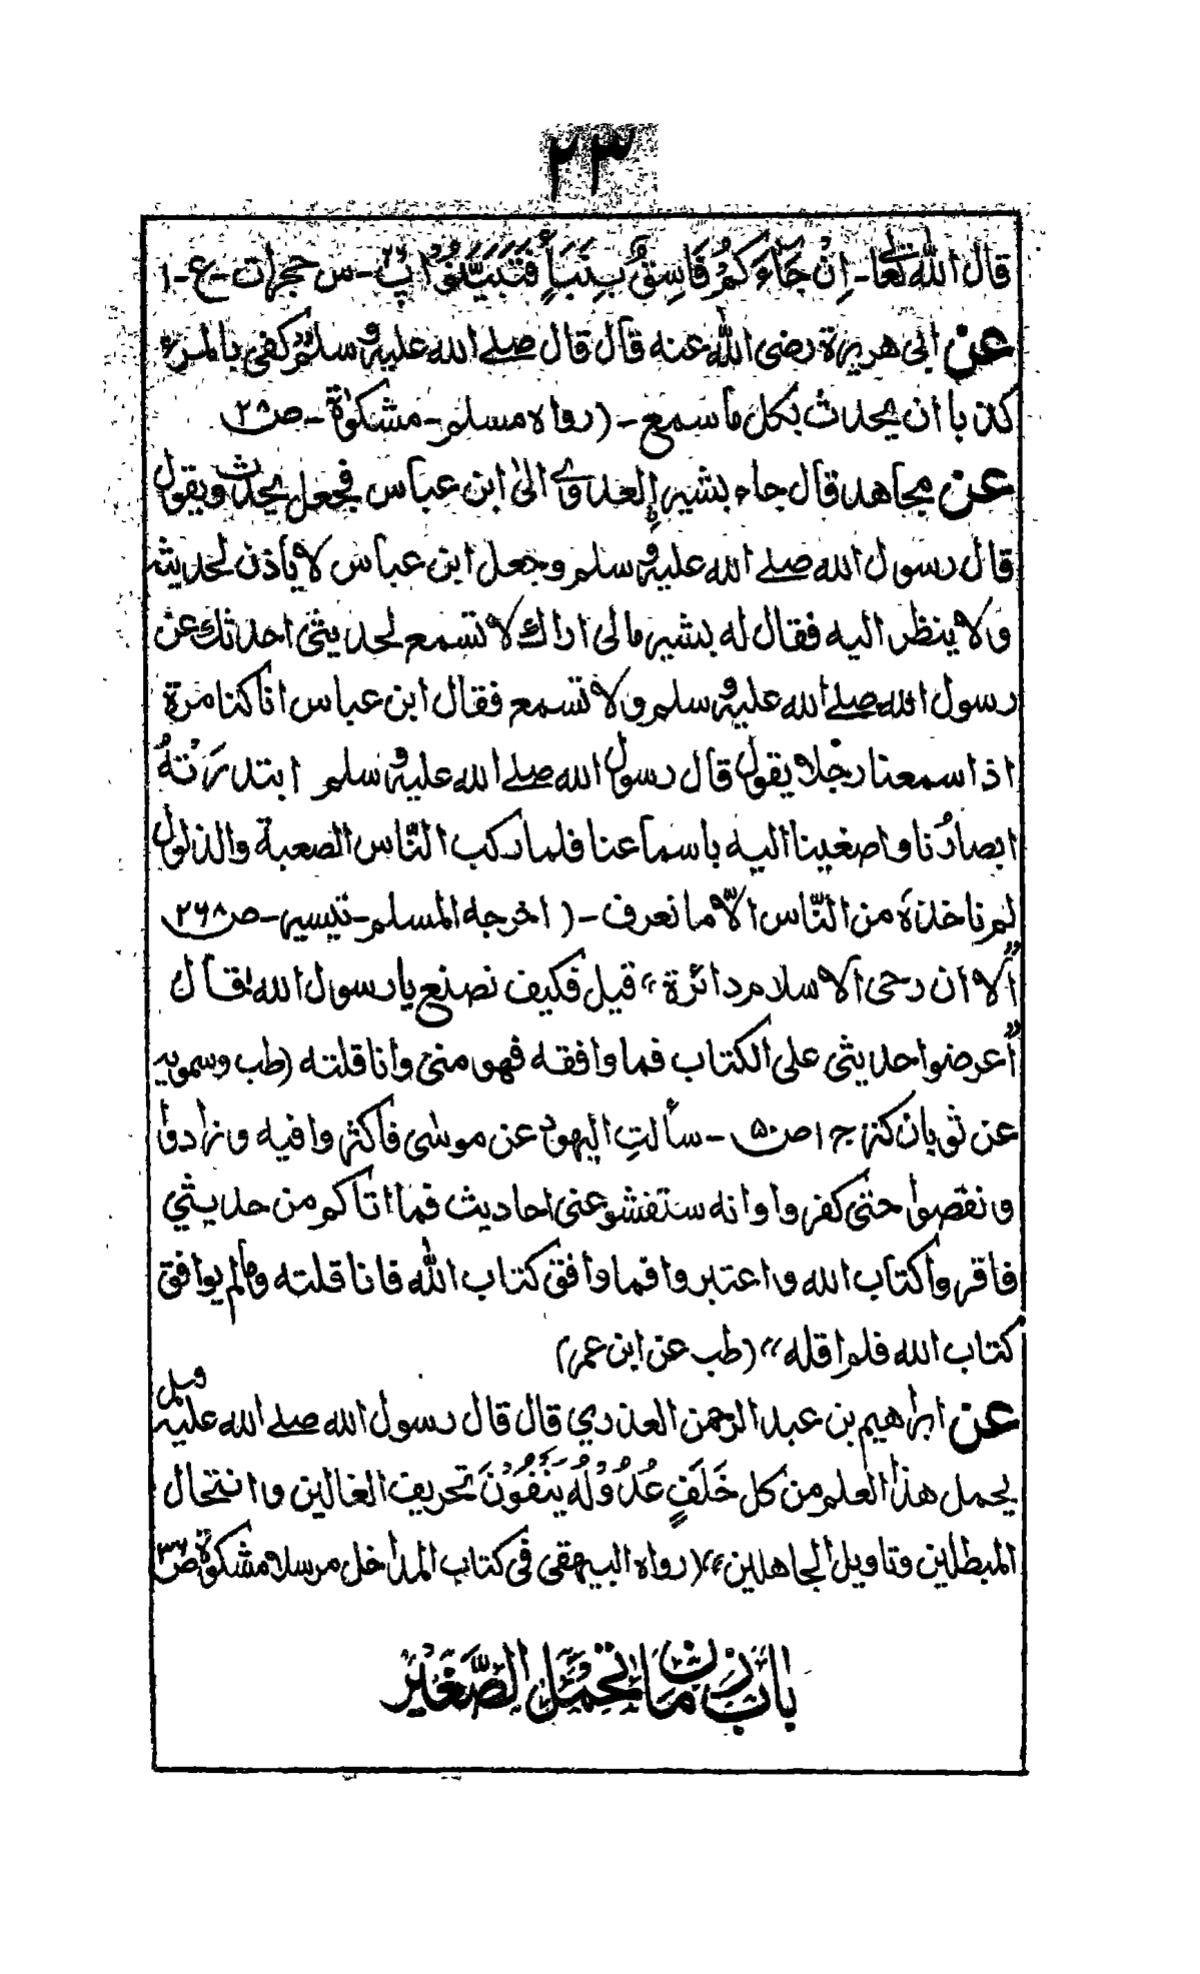 ٢٣
قال الله تعالى ـ اِنْ جَآءَكُمْ فَاسِقٌ بِنَبَأٍ فَتَبَيَّنُوْا پ٢٦ ـ س حجرات ـ ع ـ ١
عن ابى هريرة رضى الله عنه قال قال صلے الله عليه وسلم كفى بالمرء
كذبا ان يحدث بكل ما سمع ـ (رواه مسلم ـ مشكوٰة ـ ص٢٨
عن مجاهد قال جاء بشير العدوے الىٰ ابن عباس فجعل يحدث ويقول
قال رسول الله صلے الله عليه وسلم وجعل ابن عباس لا يأذن لحديثه
ولا ينظر اليه فقال له بشير مالى اراك لا تسمع لحديثى احدثك عن
رسول الله صلے الله عليه وسلم ولا تسمع فقال ابن عباس انا كنا مرة
اذا سمعنا رجلا يقول قال رسول الله صلے الله عليه وسلم ابتدرَتْهُ
ابصارُنا واصغينا اليه باسماعنا فلما ركب النّاس الصعبة والذلول
لم ناخذه من النّاس الاّ ما نعرف ـ (اخرجه المسلم ـ تيسير ـ ص٢٦٨
"ألا ان رحى الاسلام دائرة" قيل فكيف نصنع يا رسول الله! قال
"أعرضوا حديثى على الكتاب فما وافقه فهو منى وانا قلته (طب وسمويه
عن ثوبان كنز ج ١ ص٥٠ ـ سألتِ اليهود عن موسٰى فاكثروا فيه وزادوا
ونقصوا حتى كفروا وانه ستفشو عنى احاديث فما اتاكم من حديثي
فاقروا كتاب الله واعتبروا فما وافق كتاب الله فانا قلته ومالم يوافق
كتاب الله فلم اقله" (طب عن ابن عمر)
عن ابراهيم بن عبد الرحمن العذري قال قال رسول الله صلے الله عليه وسلم
يحمل هذا العلم من كل خَلَفٍ عُدُوْلُهُ يَنْفُوْنَ تحريف الغالين وانتحال
المبطلين وتاويل الجاهلين" (رواه البيهقى فى كتاب المداخل مرسلا مشكوٰة ص٣٦
باب زمان تحمل الصغير